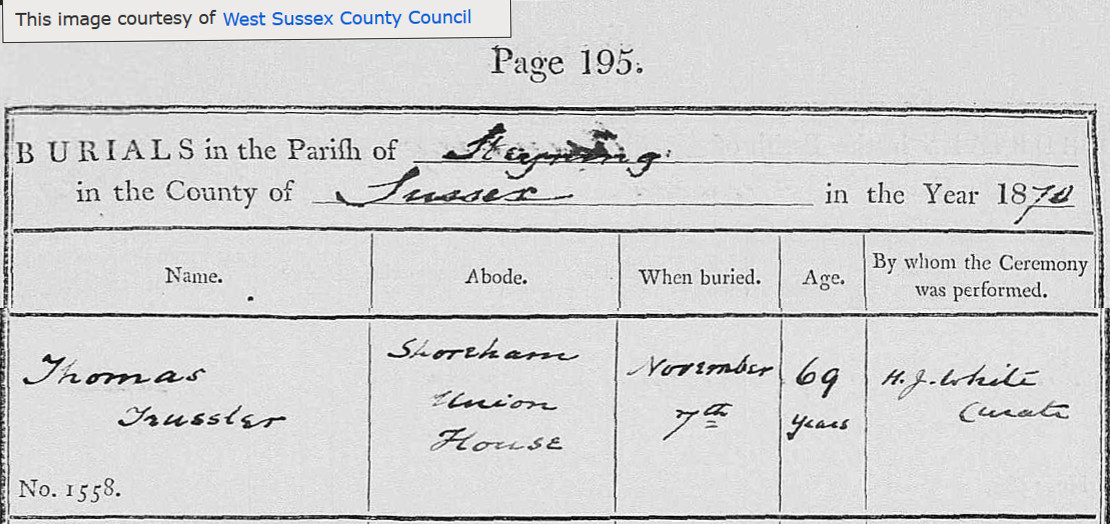 This image courtesy of West Sussex County Council
Page 195.
BURIALS in the Pariſh of Steyning
in the County of Sussex in the Year 1870
Name.
Abode.
When buried.
Age.
By whom the Ceremony
was performed.
Thomas
Trussler
No. 1558.
Shoreham
Union
House
November
7th
69
years
H. J. White
Curate